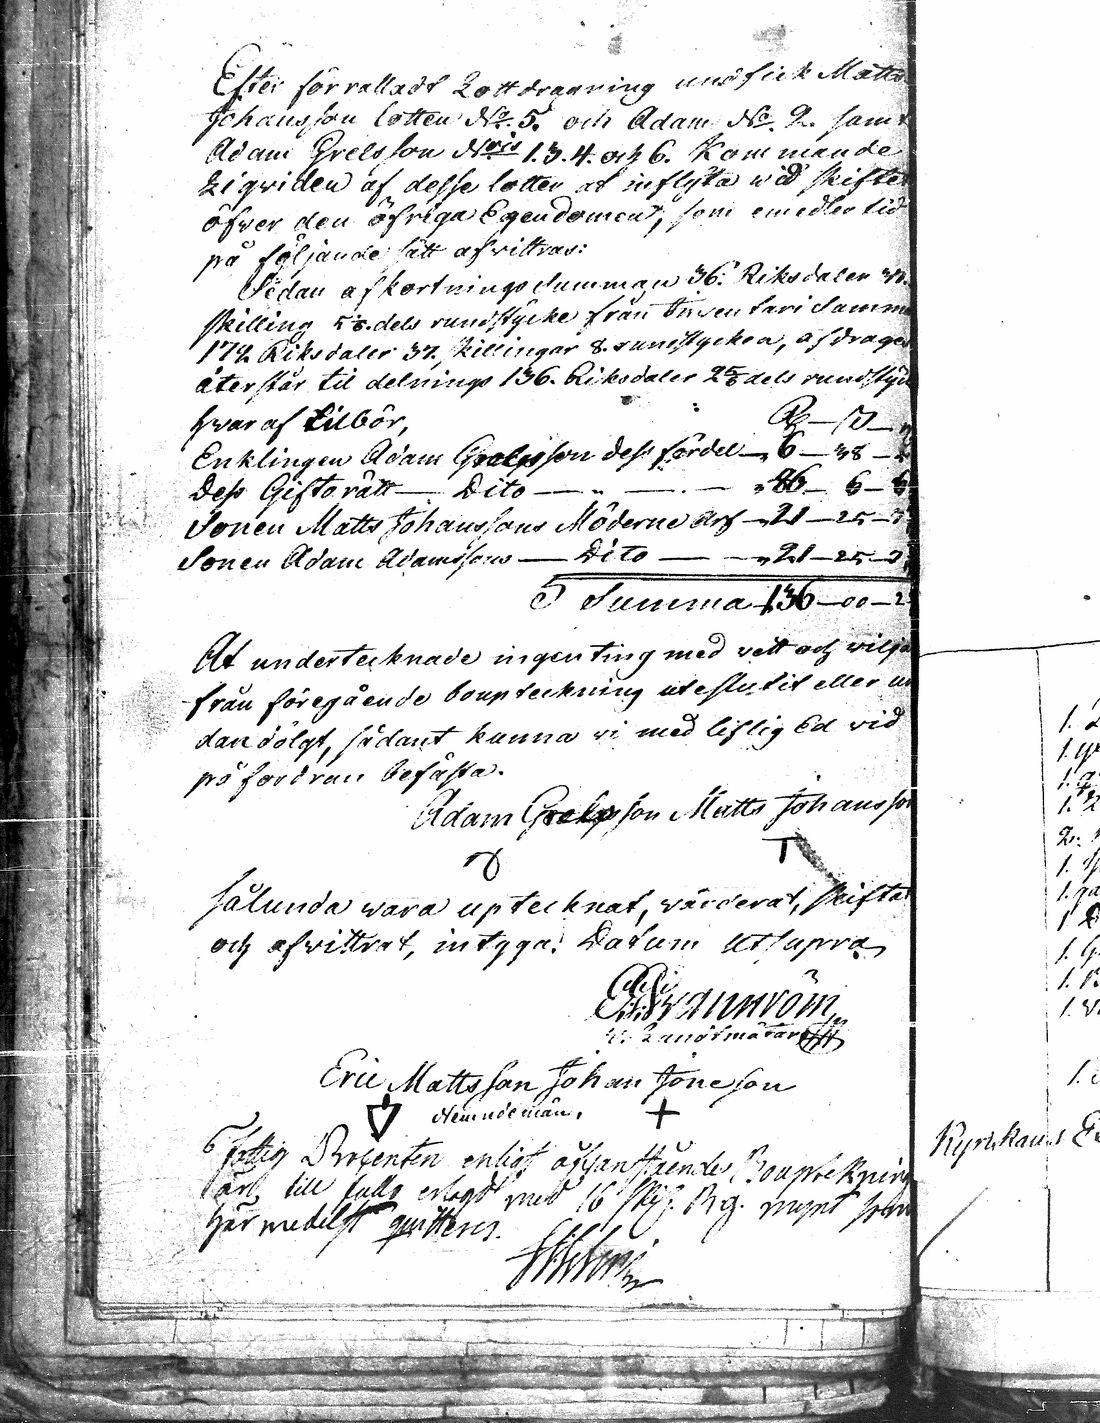 Efter förrattadt Lottdragning undfick Matts
Johansson lotten No. 5. och Adam No. 2. samt
Adam Grelsson Nris 1.3.4. och 6. Kommande
Liqviden af desse lotter at inflyta wid skiftet
öfwer den öfriga Egendomen, som emedlertid
på följande sätt afvittras:
Sedan afkortnings summan 36. Riksdaler
skilling dels rundstycke från Inventari Summ
172 Riksdaler 37. skillingar 8. runstycken, afdrages
återstår til delnings 136. Riksdaler 2 dels rundstyc
hvar af tilbör,
Enklingen Adam Grelsson dess fördel — 6 — 38 —
Dess Giftorätt — Dito — 86 — 6 —
Sonen Matts Johanssons Möderne Arf — 21 — 25 —
Sonen Adam Adamssons — Dito — 21 — 25 —
Summa 136 — 00 — 2
At undertecknade ingenting med vett och vilja
från föregående bouptekning uteslutit eller un
dandölgt, sådant kunna vi med liflig Ed vid
påfordran befästa.
Adam Grelsson Matts Johansson
Sålunda wara uptecknat, värderat, skiftat
och afvittrat, intyga. Datum ut supra
Landtmätare
Eric Mattsson Johan Jönesson
Nemndemän.
Fattig Procenten enligt ofvanstående Bouptekning
är till fullo erlagd med 16 sk. Rg. mynt som
härmedelst quitteras.
1.
1.
1.
1.
2.
1.
1.
1
1.
1.
1.
1.
Kyrckans